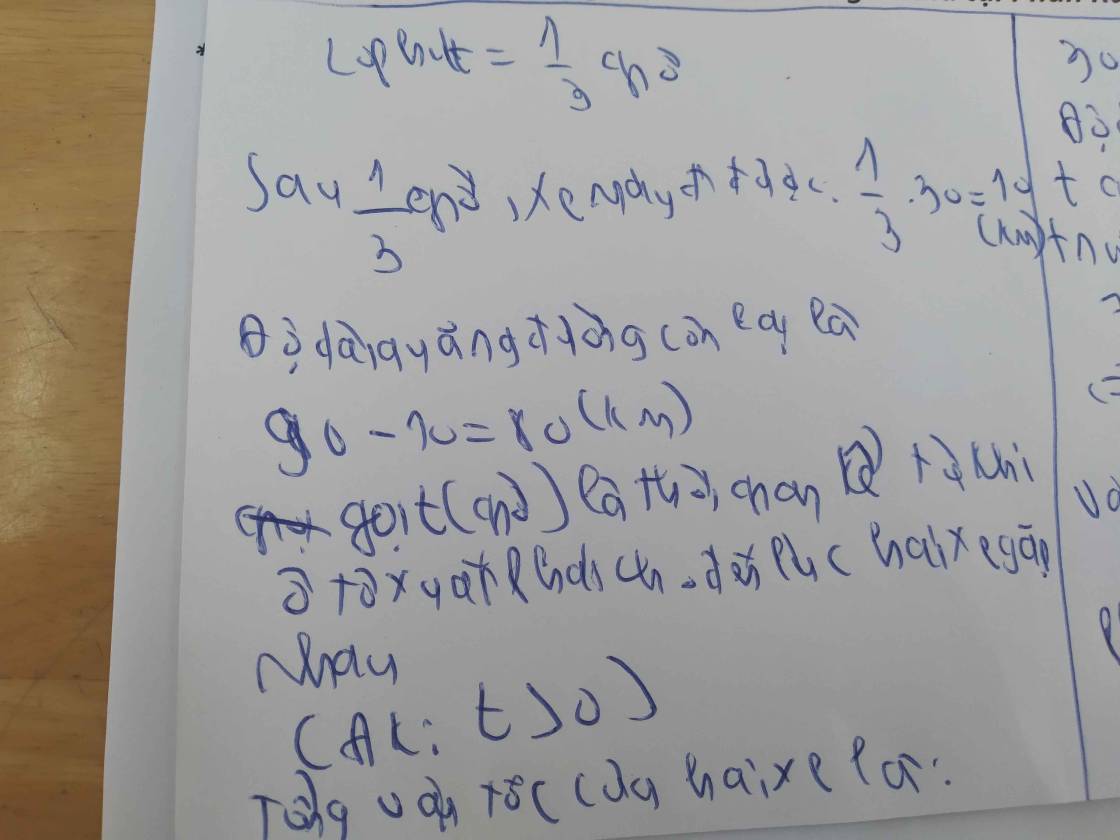 20 phút = 1/3 giờ
Sau 1/3 giờ, xe máy đi được: 1/3 . 30 = 10 (km)
Độ dài quãng đường còn lại là
90 - 10 = 80 (km)
gọi t (giờ) là thời gian kể từ khi
ô tô xuất phát đến lúc hai xe gặp
nhau
(ĐK: t > 0)
Tổng vận tốc của hai xe là:
30